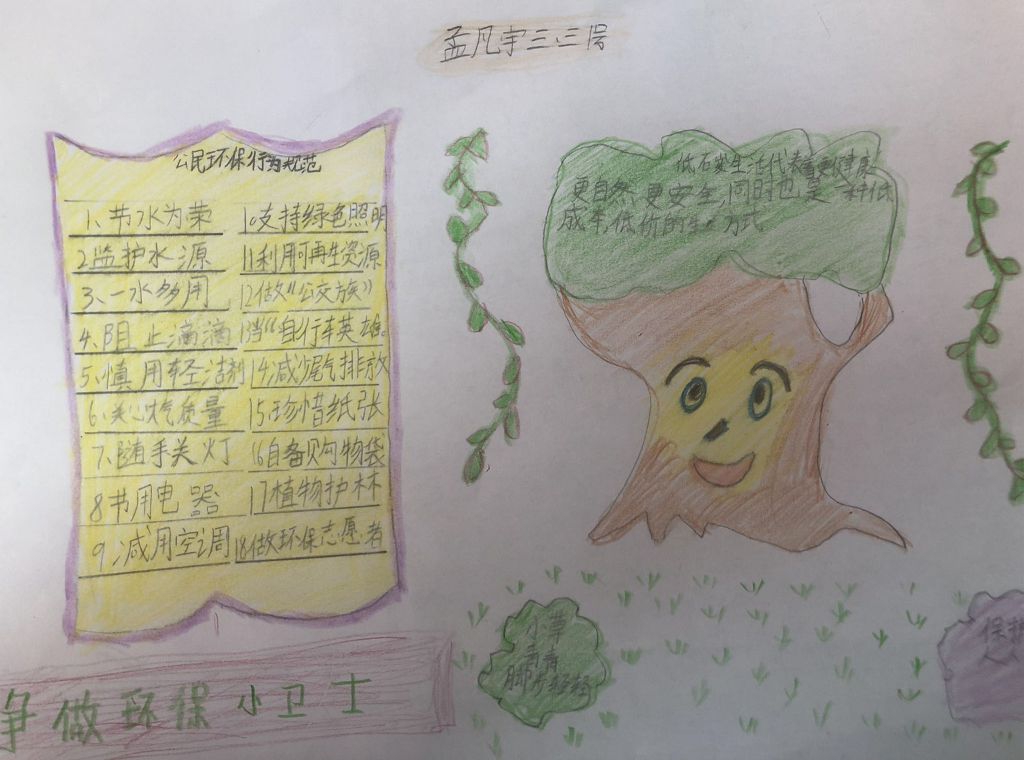 孟凡宇三.三号
公民环保行为规范
1、节水为荣
2监护水源
3、一水多用
4、阻止滴滴
5、慎用轻洁剂
6、关心炊气质量
7、随手关灯
8节用电器
9、减用空调
10支持绿色照明
11利用可再生资源
12做《公交族》
13当“自行车英雄。
14减少尾气排放
15珍惜纸张
16自备购物袋
17植物护林
18做环保志愿者
低石炭生活代表着更健康
更自然、更安全,同时也是一种低
成年,低价的生 方式
小草
青青
脚步轻轻
保护
争做环保小卫士